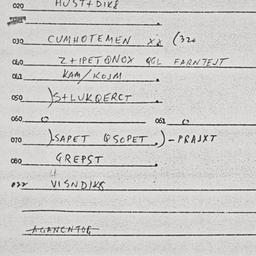 020 HUST+DIK8
030 CUMHOTEMEN X2 (320
040 Z+IPET QNOX QGL FARNTEJT
041 KAM/KOJM
050 )S+LUKQERCT
060 O 061 O
070 ).SAPET QSOPET .)-PRAJXT
080 GREPST
VISNDIK8